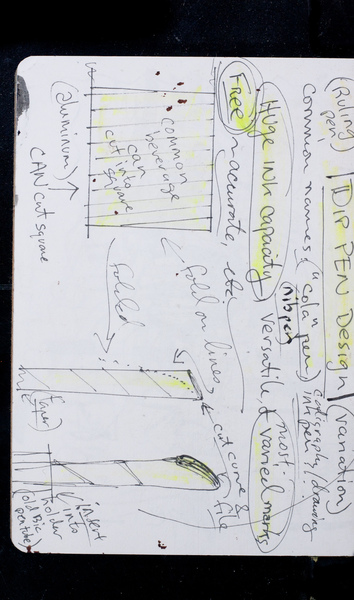 (Ruling pen) DIP PEN Design (variation)
common names: "cola pen" caligraphy, drawing
nib pen ink pen
Huge ink capacity, versatile, & most varied mark,
Free, accurate, etc
common
beverage
can
cut into
square
fold on lines,
cut curve &
file
folded
(aluminum)
CAN cut square
insert
into
holder
(old Bic